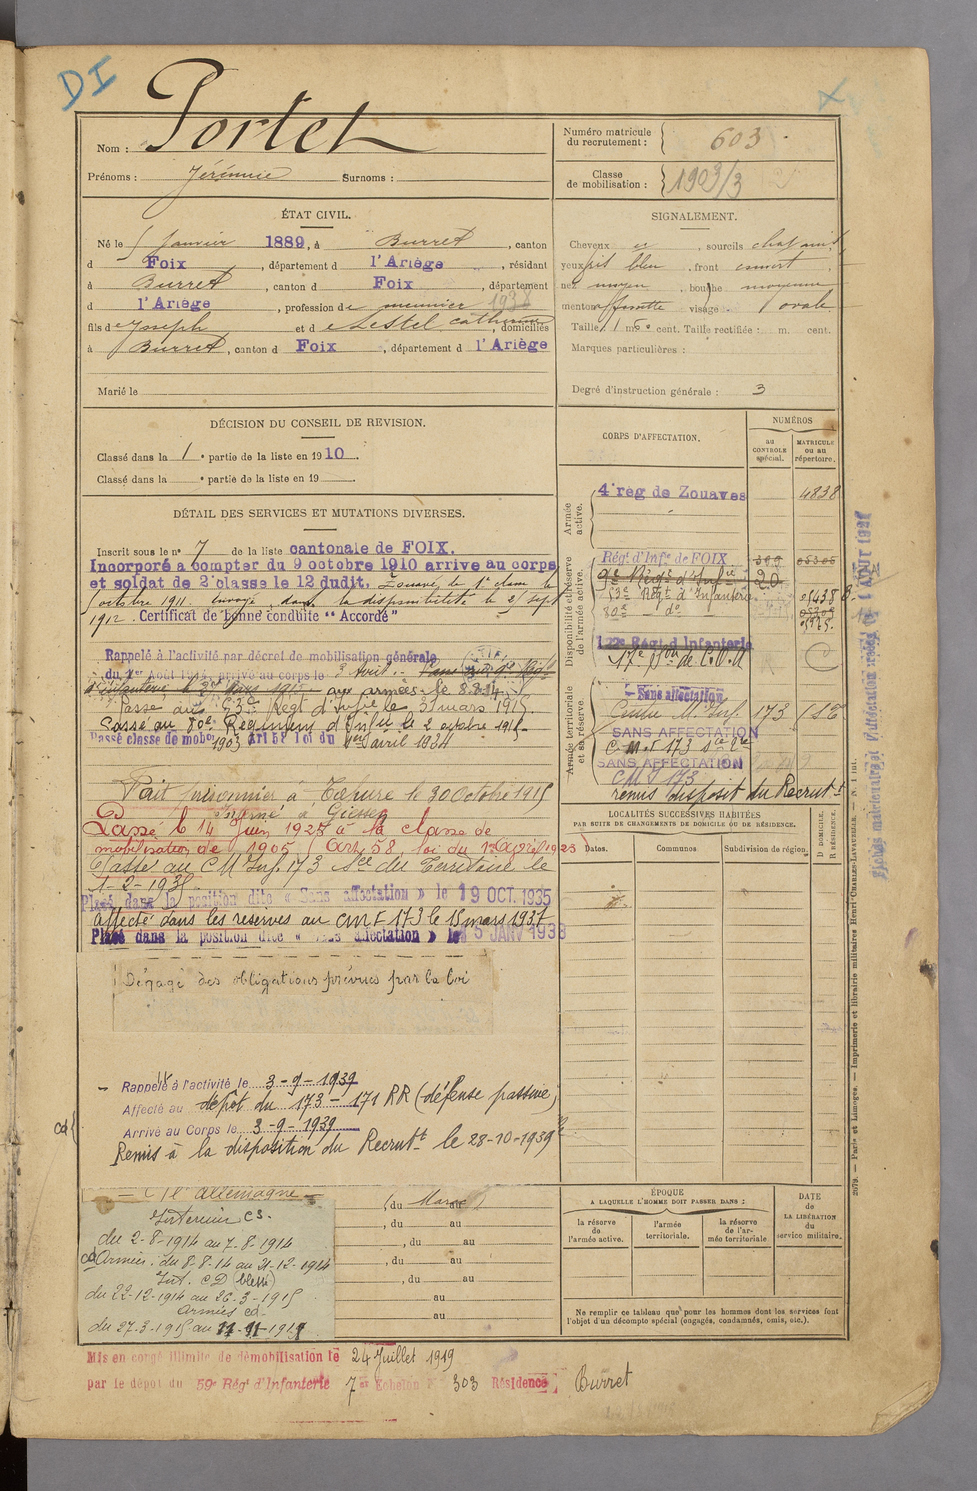 DI
Nom : Portet
Prénoms : Jérémie Surnoms :
Numéro matricule du recrutement : 603
Classe de mobilisation : 1903/3
ÉTAT CIVIL.
Né le 5 Janvier 1889, à Burret, canton
d Foix, département d l'Ariège, résidant
à Burret, canton d Foix, département
d l'Ariège, profession de meunier
fils de Joseph et de Lestel Catherine, domiciliés
à Burret, canton d Foix, département d l'Ariège
Marié le
SIGNALEMENT.
Cheveux et, sourcils chatains
yeux gris bleu, front couvert,
nez moyen, bouche moyenne
menton fossette visage ovale
Taille : 1 m 60 cent. Taille rectifiée : m. cent.
Marques particulières :
Degré d'instruction générale : 3
DÉCISION DU CONSEIL DE REVISION.
Classé dans la 1e partie de la liste en 1910.
Classé dans la e partie de la liste en 19
DÉTAIL DES SERVICES ET MUTATIONS DIVERSES.
Inscrit sous le n° 7 de la liste cantonale de FOIX.
Incorporé à compter du 9 octobre 1910 arrivé au corps
et soldat de 2e classe le 12 dudit. Zouave de 1e classe le
5 octobre 1911. Envoyé dans la disponibilité le 25 sept
1912. Certificat de bonne conduite "Accordé"
Rappelé à l'activité par décret de mobilisation générale
du 1er Août 1914, arrivé au corps le 3 Août
d'infanterie le 27 Mars 1915 aux armées le 8.8.14.
Passé au 53e Régt d'Infie le 31 mars 1915.
Passé au 80e Régiment d'Infie le 2 octobre 1915.
Passé classe de mobon 1903 Art 58 loi du 1er avril 1924
Fait prisonnier à Tahure le 30 Octobre 1915
Interné à Giessen
Passé le 14 Juin 1927 à la classe de
mobilisation de 1905 (Art. 58 loi du 1er Avril 1923
Passé au C M Inf. 173 Sce du Territoire le
1-2-1935
Placé dans la position dite « Sans affectation » le 19 OCT. 1935
Affecté dans les réserves au CMF 173 le 15 mars 1937
Placé dans la position dite « Sans affectation » le 5 JANV 1938
Dégagé des obligations prévues par la loi
Rappelé à l'activité le 3-9-1939
Affecté au dépôt du 173 - 171 RR (défense passive)
Arrivé au Corps le 3-9-1939
Remis à la disposition du Recrutt le 28-10-1939
CORPS D'AFFECTATION.
NUMÉROS
au CONTRÔLE spécial.
MATRICULE ou au répertoire.
Armée active.
4e rég de Zouaves 4838
Disponibilité et réserve de l'armée active.
Régt d'Infie de FOIX 300 05305
9e Régt d'Infie 20
53e Régt d'Infanterie 05438
80e - do
122e Régt d'Infanterie
17e Son de C.O.A
Armée territoriale et sa réserve.
Sans affectation
Centre M. Inf. 173 (ST
SANS AFFECTATION
C M I 173 Sce Tre
SANS AFFECTATION
C M I 173
remis disposit du Recrutt
LOCALITÉS SUCCESSIVES HABITÉES
PAR SUITE DE CHANGEMENTS DE DOMICILE OU DE RÉSIDENCE.
Dates.
Communes.
Subdivision de région.
D DOMICILE. R RÉSIDENCE.
C/ l'Allemagne
Intérieur CS.
du 2-8-1914 au 7-8-1914
Armées : du 8-8-14 au 21-12-1914
Int. CD (blessé)
du 22-12-1914 au 26-3-1915
Armées CD
du 27-3-1915 au 11-11-1917
du Maroc
, du au
, du au
, du au
, du au
au
au
ÉPOQUE
A LAQUELLE L'HOMME DOIT PASSER DANS :
la réserve de l'armée active.
l'armée territoriale.
la réserve de l'armée territoriale
DATE de LA LIBÉRATION du service militaire.
Ne remplir ce tableau que pour les hommes dont les services font
l'objet d'un décompte spécial (engagés, condamnés, omis, etc.).
Mis en congé illimité de démobilisation le 24 Juillet 1919
par le dépôt du 59e Régt d'Infanterie 7e Echelon N° 303 Résidence Burret
2079. — Paris et Limoges. — Imprimerie et librairie militaires Henri CHARLES-LAVAUZELLE.